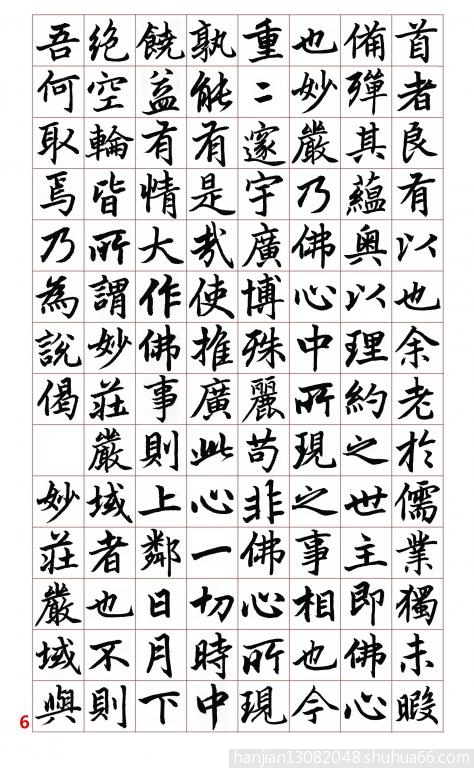 首者良有以也余老於儒業獨未暇
備殫其蘊奧以理約之世主即佛心
也妙嚴乃佛心中所現之事相也今
重二邃宇廣博殊麗苟非佛心所現
孰能有是哉使推廣此心一切時中
饒益有情大作佛事則上鄰日月下
絕空輪皆所謂妙莊嚴域者也不則
吾何取焉乃為說偈 妙莊嚴域與
6
hanjian13082048.shuhua66.com